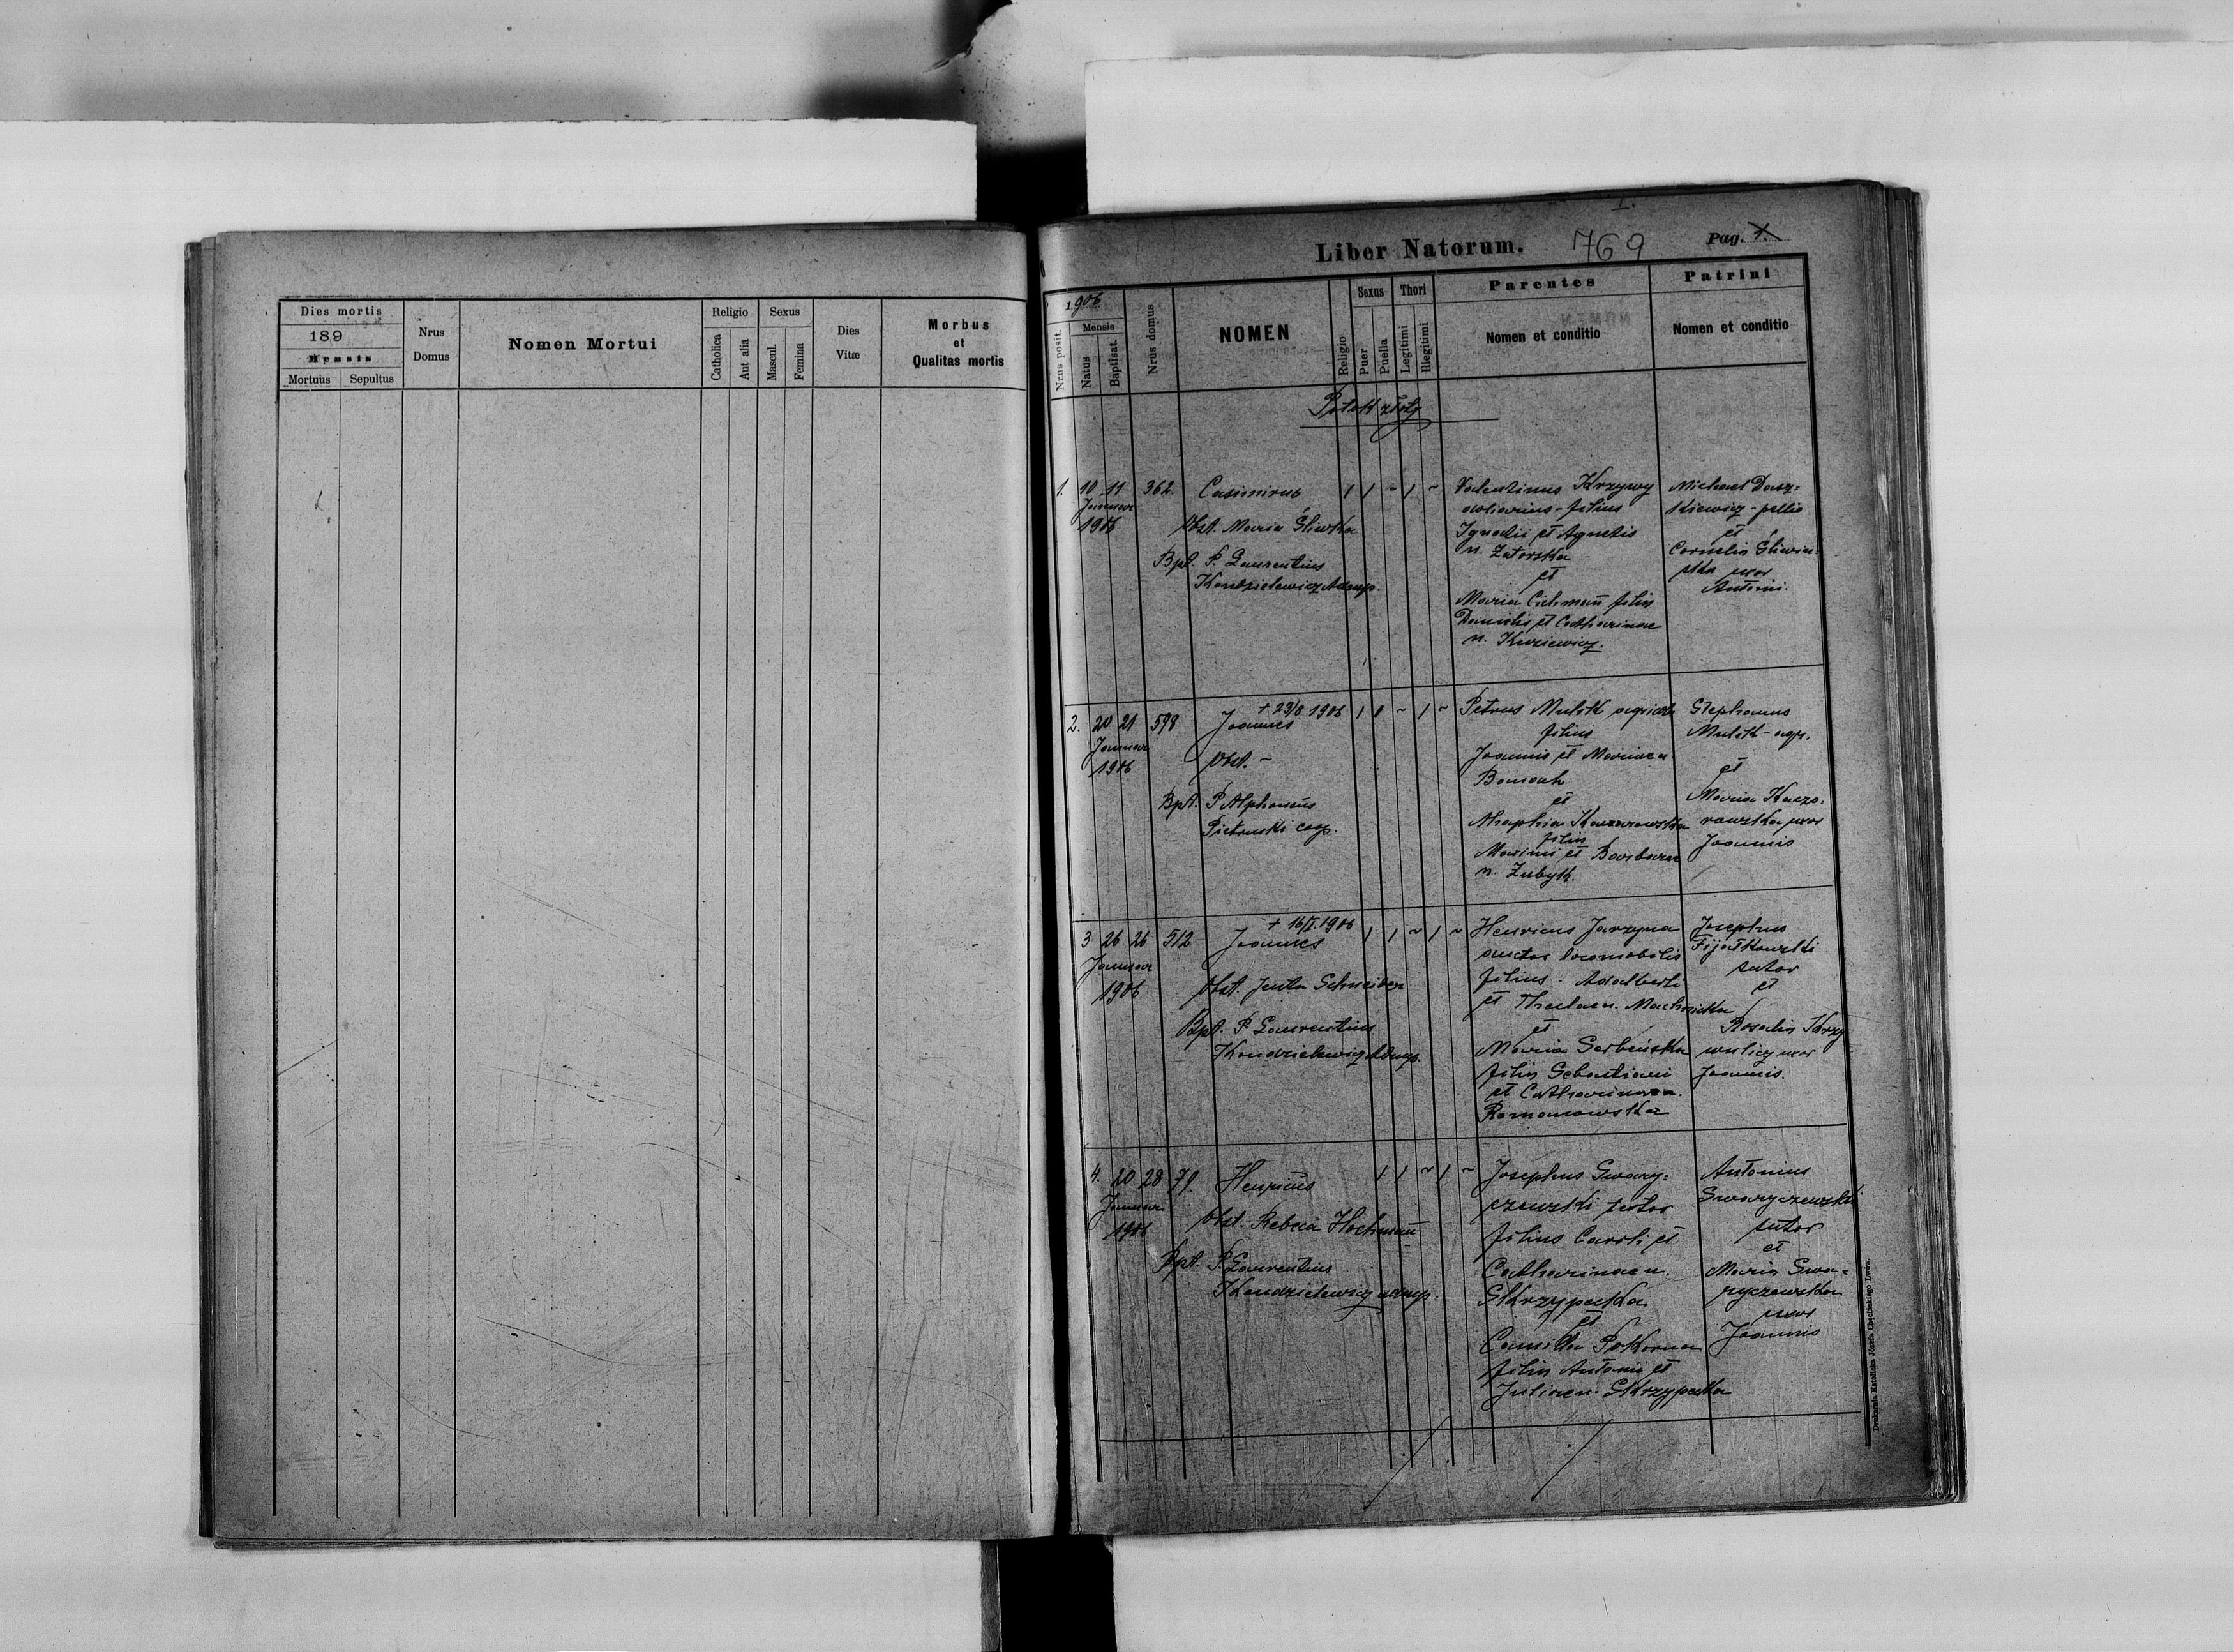 Dies mortis
189
Mensis
Mortuus
Sepultus
Nrus
Domus
Nomen Mortui
Religio
Catholica
Aut alia
Sexus
Mascul.
Femina
Dies
Vitæ
Morbus
et
Qualitas mortis
I.
Liber Natorum.
769
Pag. 1.
Nrus posit.
1906
Mensis
Natus
Baptisat.
Nrus domus
NOMEN
Religio
Sexus
Puer
Puella
Thori
Legitimi
Illegitimi
Parentes
Nomen et conditio
Patrini
Nomen et conditio
Potok złoty
1. 10 11 362. Casimirus 1 1 ~ 1 ~
Januar
1906
Obst. Maria Śliwka
Bpt. P. Laurentius
Kondzielewicz Admp.
Valentinus Krzywy
filius
Ignatii et Agnetis
n. Zatorska
et
Maria Cichman filia
Danielis et Catharinae
n. Kuziewicz.
Michael Dasz=
kiewicz - pellio
et
Cornelia Śliwin
ska uxor
Antonii.
2. 20 21 598 Joannes + 23/8 1906 1 1 ~ 1 ~
Januar
1906
Obst. -
Bpt. P Alphonsus
Pietruski coop.
Petrus Mulek agricola
filius
Joannis et Mariae n
et
filia
Maximi et Barbarae
n. Zubyk.
Stephanus
Mulek - agr.
et
Maria Kaczo-
rowska uxor
Joannis
3 26 26 512 Joannes + 16/I. 1906 1 1 ~ 1 ~
Januar
1906
Obst. Jenta Schneiber
Bpt. P. Laurentius
Kondzielewicz Admp.
Henricus Jarzyna
ductor locomobilis
filius Adalberti
et Theclae n. Machnicka
et
Maria Serbeńska
filia Sebastiani
et Catharinae n.
Romanowska
Josephus
Fijałkowski
sutor
et
Rosalia Krzy
wulicz uxor
Joannis.
4. 20 28 71. Henricus 1 1 ~ 1 ~
Januar
1906
Obst. Rebeca Hochman
Bpt. P. Laurentius
Kondzielewicz admp.
Josephus Swary=
czewski sutor
filius Caroli et
Catharinae n.
Skrzypecka
et
Camilla Pokorna
filia Antonii et
Juliae n. Skrzypecka
Antonius
Swaryczewski
sutor
et
Maria Swa=
ryczewska
uxor
Joannis
Drukarnia Katolicka Józefa Chęcińskiego Lwów.